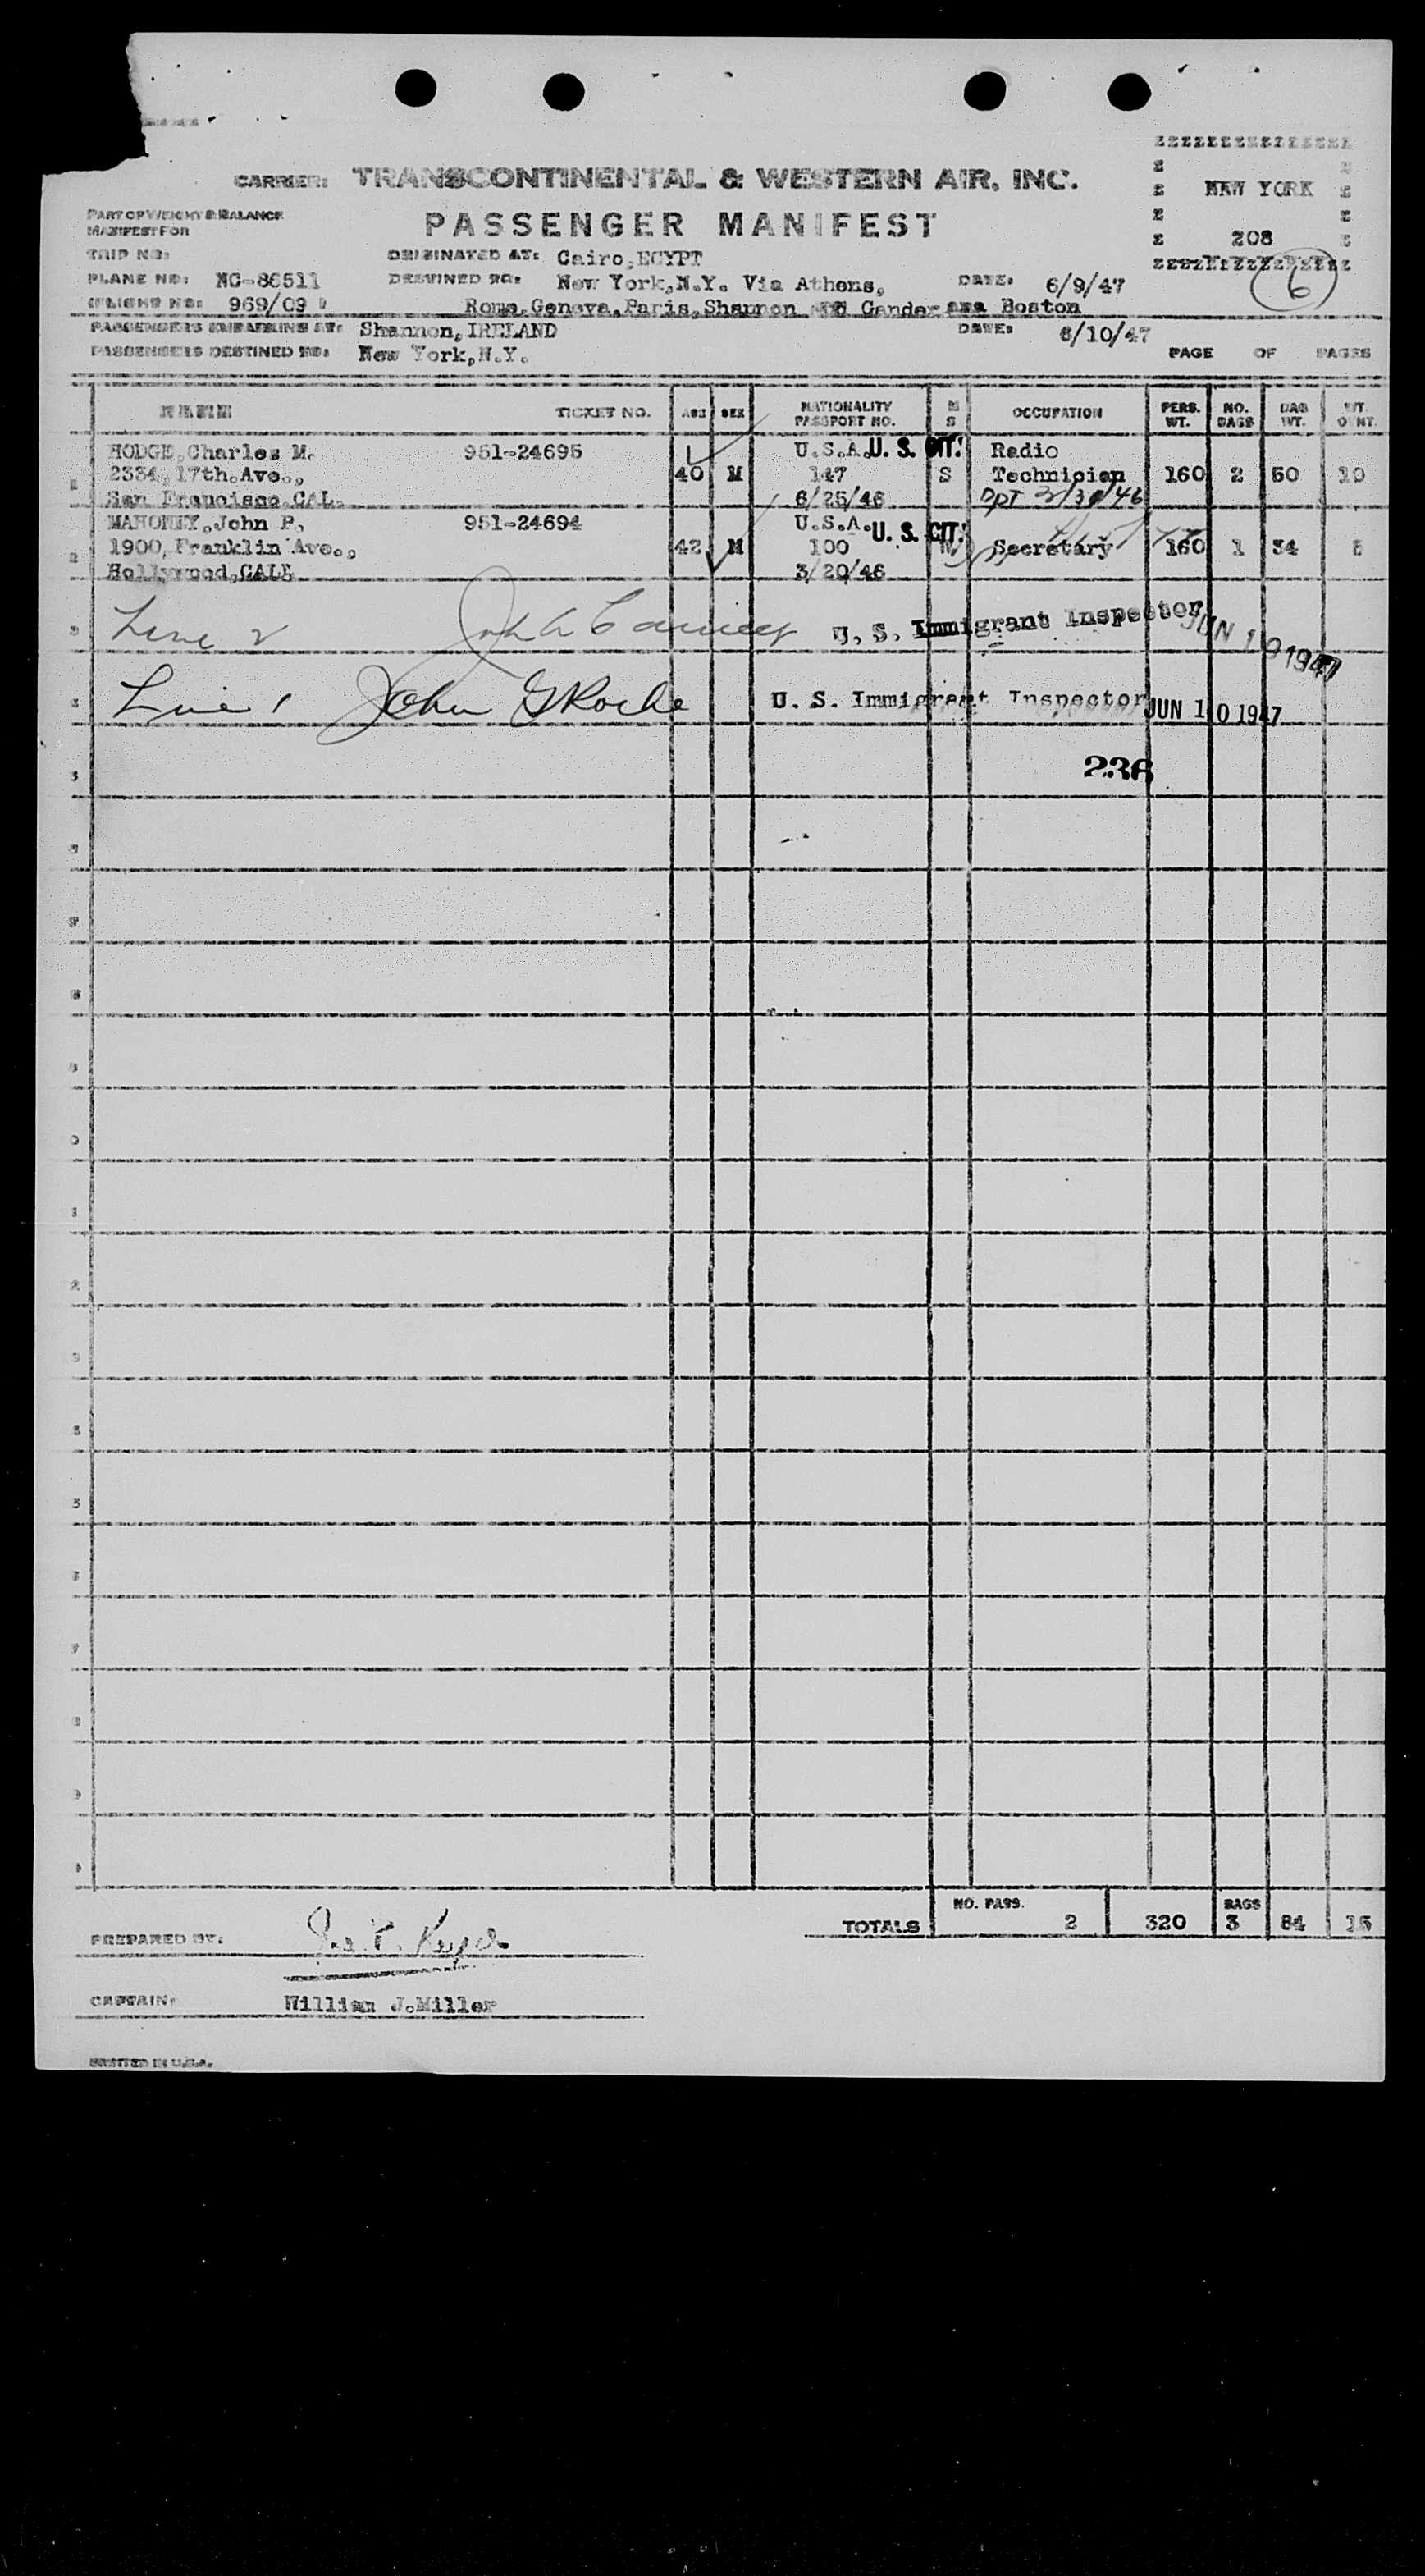 CARRIER: TRANSCONTINENTAL & WESTERN AIR, INC.
PART OF WEIGHT & BALANCE
MANIFEST FOR
PASSENGER MANIFEST
NEW YORK
208
6
TRIP NO:
ORIGINATED AT: Cairo, EGYPT
PLANE NO: NC-86511
DESTINED TO: New York, N.Y. Via Athens,
DATE: 6/9/47
FLIGHT NO: 969/09
Rome, Geneva, Paris, Shannon Gander Boston
PASSENGERS EMBARKING AT: Shannon, IRELAND
DATE: 6/10/47
PASSENGERS DESTINED TO: New York, N.Y.
PAGE OF PAGES
NAME TICKET NO. AGE SEX NATIONALITY PASSPORT NO. M S OCCUPATION PERS. WT. NO. BAGS BAG WT. WT. OVHT.
HODGE, Charles M. 951-24695 U.S.A. U. S. CIT. Radio
1 2334, 17th. Ave., 40 M 147 S Technician 160 2 50 10
San Francisco, CAL. 6/25/46
MAHONEY, John P. 951-24694 U.S.A. U. S. CIT.
2 1900, Franklin Ave., 42 M 100 Secretary 160 1 34 5
Hollywood, CALF. 3/20/46
Line 2 U. S. Immigrant Inspector JUN 10 1947
Line 1 John G Roche U. S. Immigrant Inspector JUN 10 1947
236
TOTALS NO. PASS. 2 320 BAGS 3 84 15
PREPARED BY:
CAPTAIN: William J. Miller
PRINTED IN U.S.A.